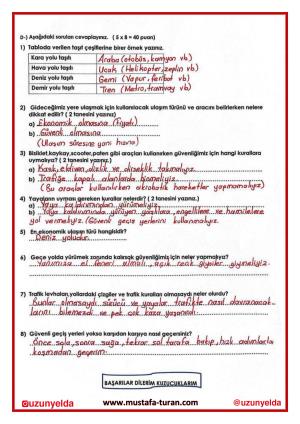 D-) Aşağıdaki soruları cevaplayınız. ( 5 x 8 = 40 puan)
1) Tabloda verilen taşıt çeşitlerine birer örnek yazınız.
Kara yolu taşıtı Araba (otobüs, kamyon vb)
Hava yolu taşıtı Uçak (Helikopter, zeplin vb)
Deniz yolu taşıtı Gemi (Vapur, feribot vb)
Demir yolu taşıtı Tren (Metro, tramvay vb)
2) Gideceğimiz yere ulaşmak için kullanılacak ulaşım türünü ve aracını belirlerken nelere
dikkat edilir? ( 2 tanesini yazınız)
a) Ekonomik olmasına (Fiyatı)
b) Güvenli olmasına
(Ulaşım süresine yani hızına)
3) Bisiklet, kaykay, scooter, paten gibi araçları kullanırken güvenliğimiz için hangi kurallara
uymalıyız? ( 2 tanesini yazınız)
a) Kask, eldiven, dizlik ve dirseklik takmalıyız.
b) Trafiğe kapalı alanlarda binmeliyiz
(Bu araçlar kullanırken akrobatik hareketler yapmamalıyız)
4) Yayaların uyması gereken kurallar nelerdir? ( 2 tanesini yazınız)
a) Yaya kaldırımından yürümeliyiz.
b) Yaya kaldırımında yürüyen yaşlılara, engellilere ve hamilelere
yol vermeliyiz (Güvenli geçiş yerlerini kullanmalıyız)
5) En ekonomik ulaşım türü hangisidir?
Deniz yoludur.
6) Gece yolda yürümek zorunda kalırsak güvenliğimiz için neler yapmalıyız?
Yanımıza el feneri almalı, açık renk giysiler giymeliyiz.
7) Trafik levhaları, yollardaki çizgiler ve trafik kuralları olmasaydı neler olurdu?
Bunlar olmasaydı sürücü ve yayalar trafikte nasıl davranacak-
larını bilemezdi ve pek çok kaza yaşanırdı.
8) Güvenli geçiş yerleri yoksa karşıdan karşıya nasıl geçersiniz?
Önce sola, sonra sağa, tekrar sol tarafa bakıp, hızlı adımlarla
koşmadan geçerim.
BAŞARILAR DİLERİM KUZUCUKLARIM
@uzunyelda www.mustafa-turan.com @uzunyelda